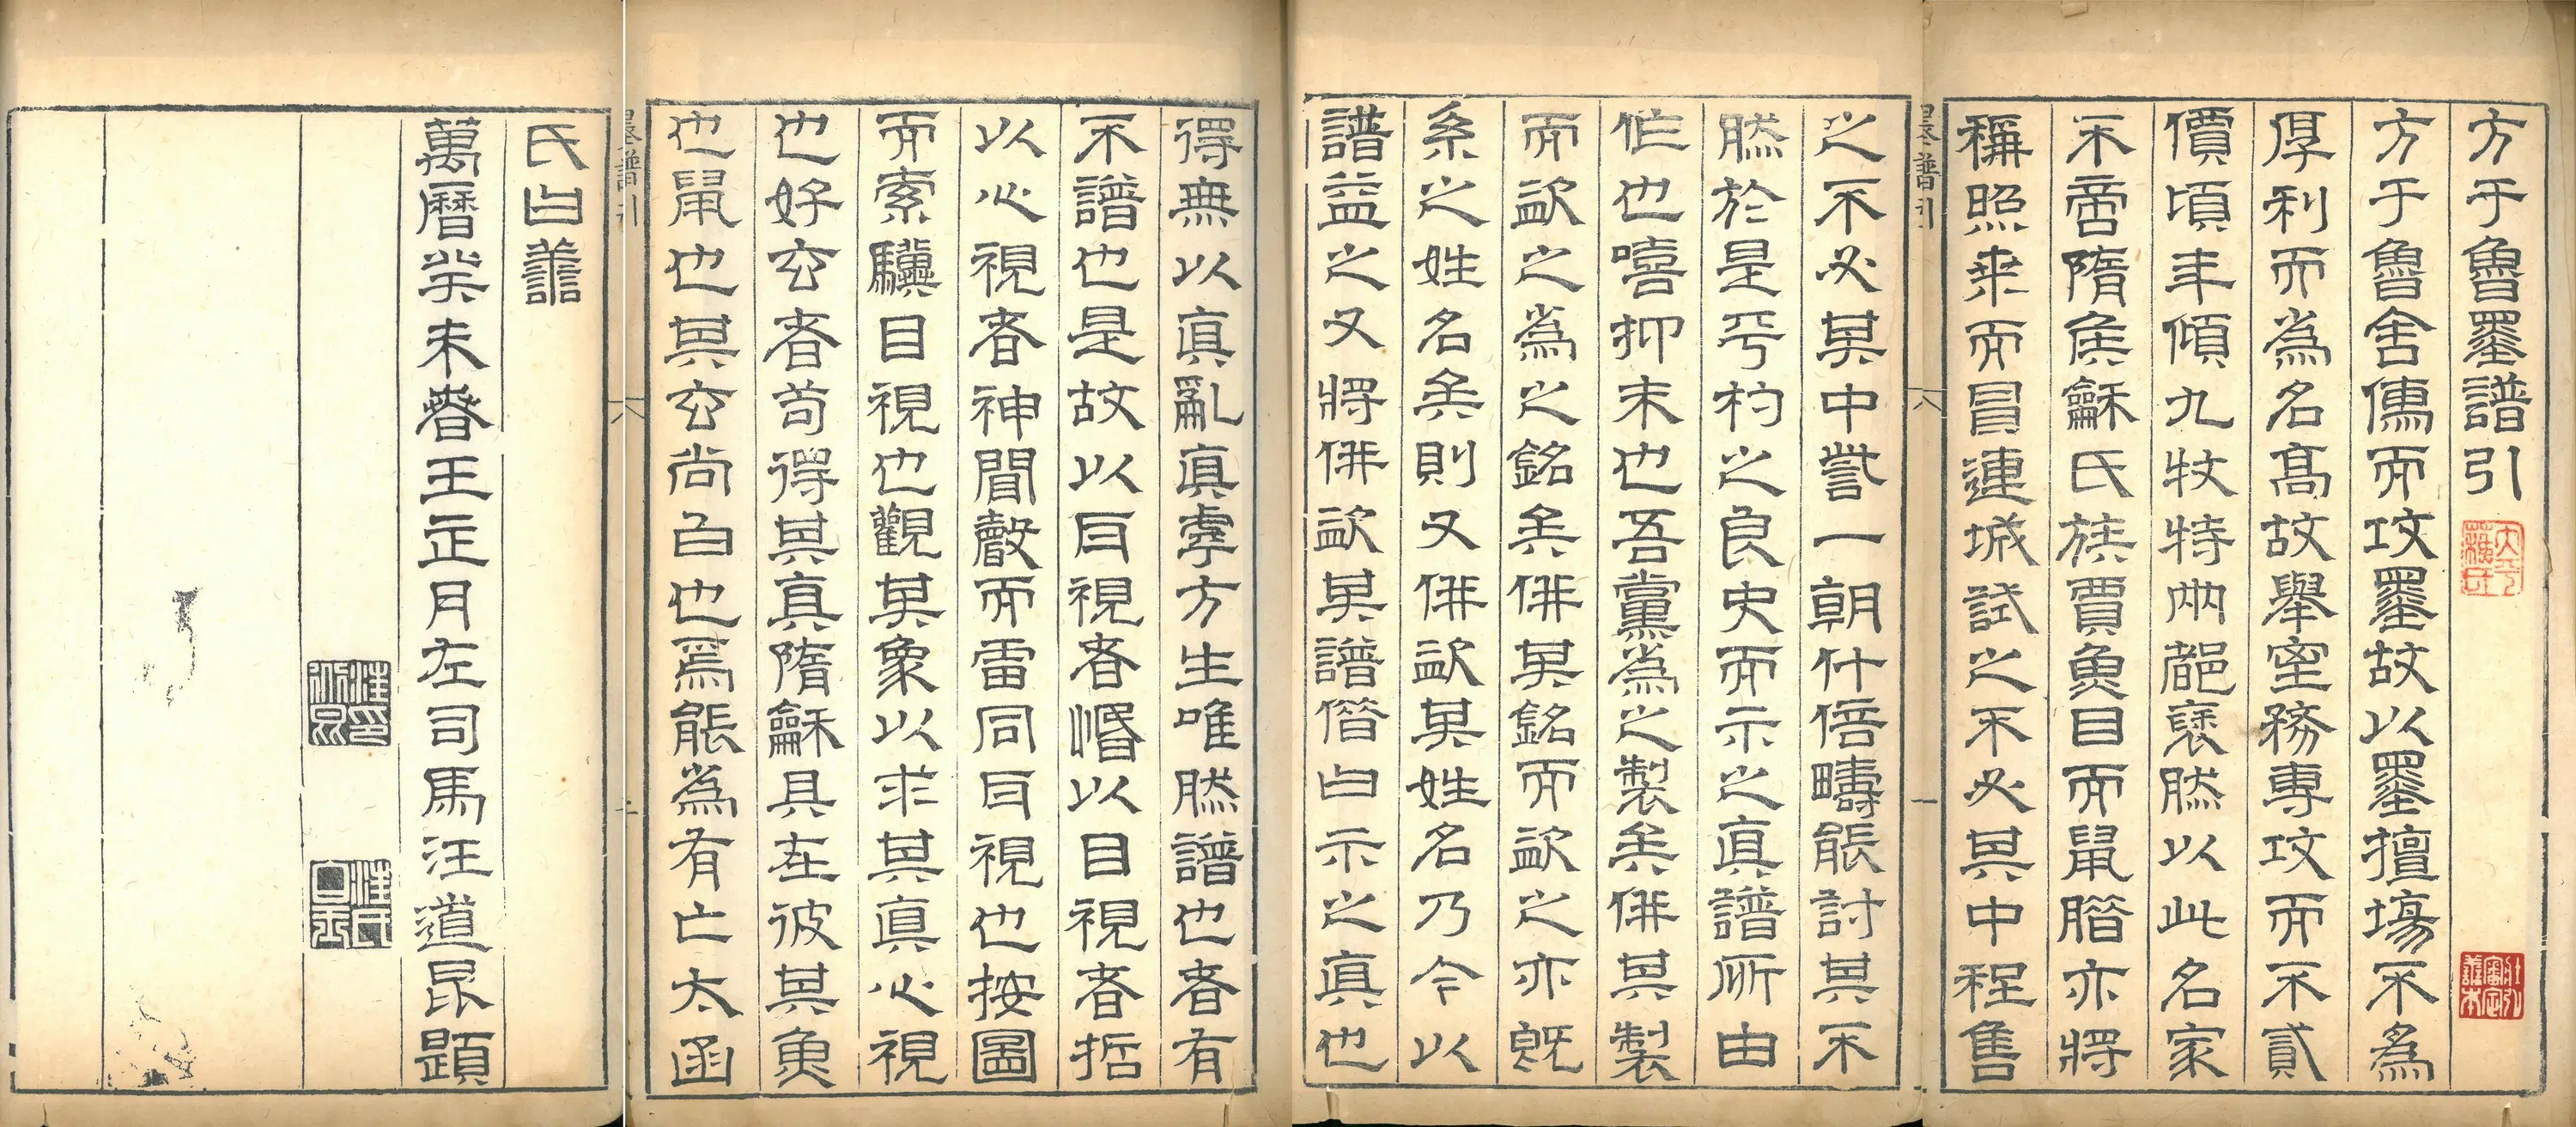 方于魯墨譜引
方于魯舍儁而攻墨故以墨擅場不為
厚利而為名高故舉室務專攻而不貳
價頃年傾九牧特兩都褎然以此名家
不啻隋矦龢氏族賈魚目而鼠腊亦將
稱照乘而冒連城試之不必其中程售
之不必其中訾一朝什倍疇能討其不
然於是乎杓之良史而示之真譜所由
作也嘻抑末也吾黨為之製矣倂其製
而歙之為之銘矣倂其銘而歙之亦既
系之姓名矣則又倂歙其姓名乃今以
譜益之又將倂歙其譜偕曰示之真也
得無以真亂真虖方生唯然譜也者有
不譜也是故以耳視者惛以目視者哲
以心視者神聞聲而雷同耳視也按圖
而索驥目視也觀其象以求其真心視
也好玄者苟得其真隋龢具在彼其魚
也鼠也其玄尚白也焉能為有亡太函
氏曰譱
萬曆癸未春王正月左司馬汪道昆題
墨譜引
六
一
墨譜引
六
二